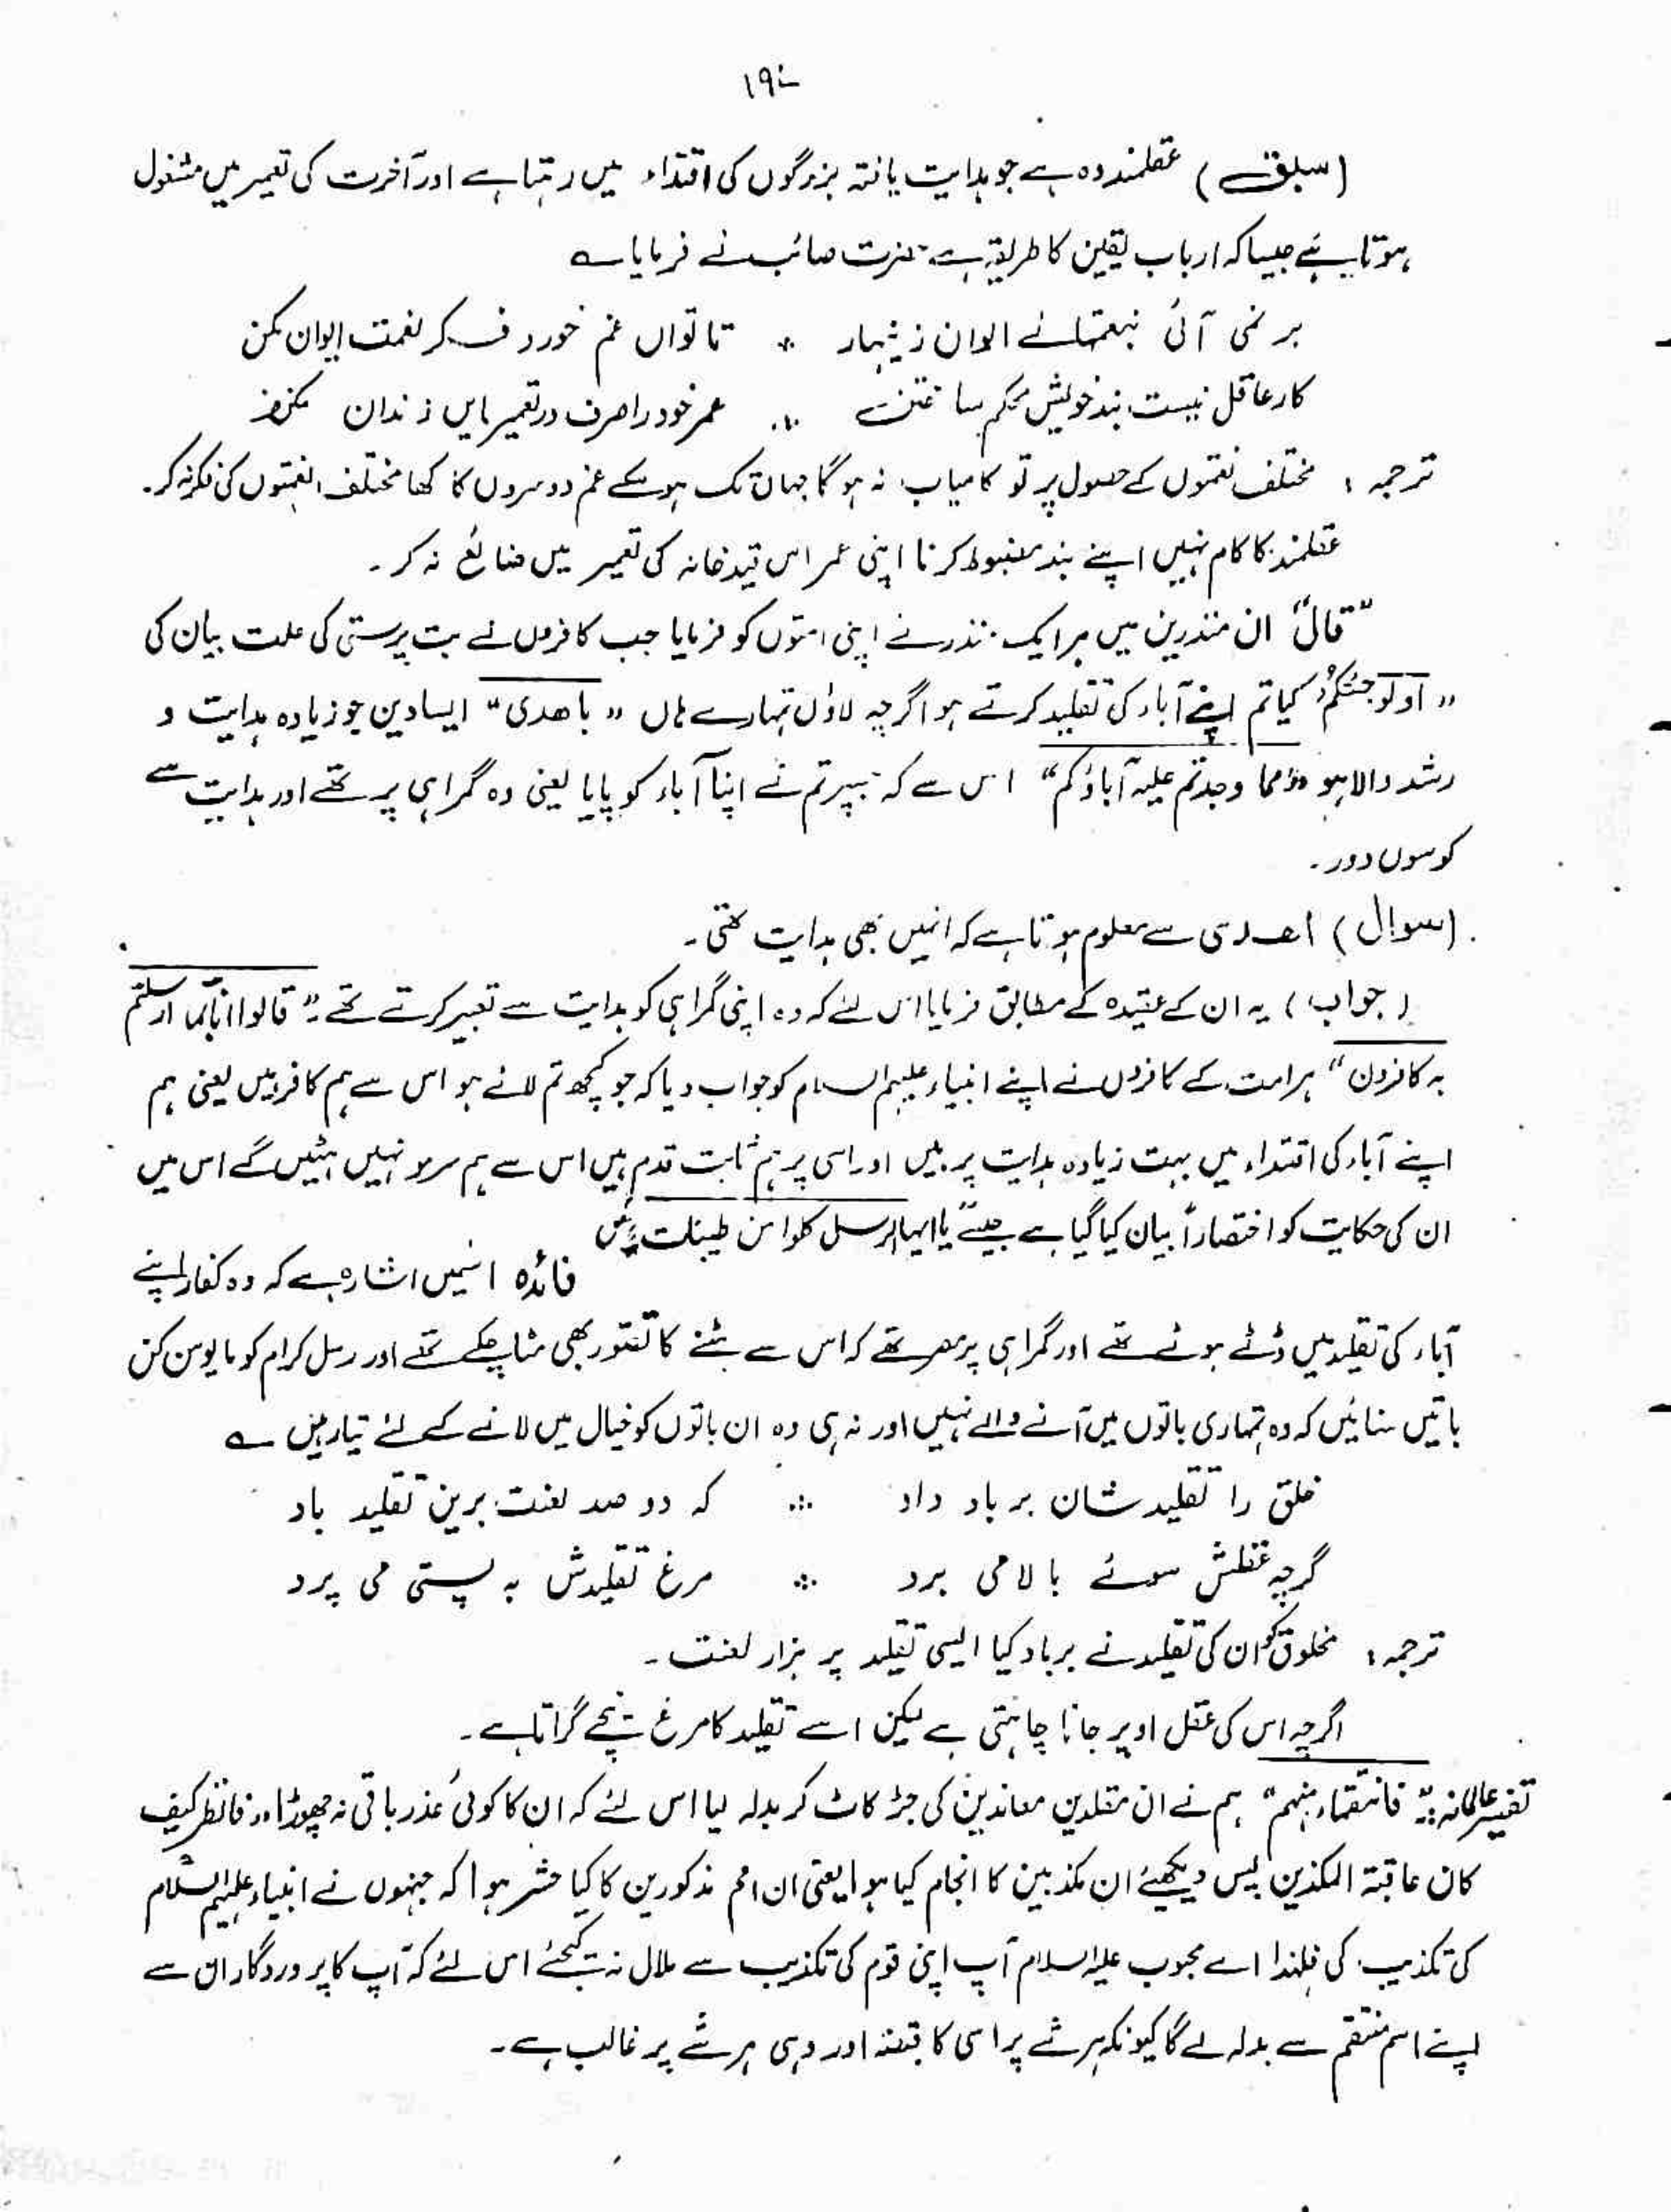 ۱۹۰
(سبق) عقلمند وہ ہے جو ہدایت یافتہ بزرگوں کی اقتداء میں رہتا ہے اور آخرت کی تعمیر میں مشغول
ہوتا ہے جیسا کہ ارباب یقین کا طریقہ ہے حضرت صائب نے فرمایا ؎
بر نمی آئی بنعمتہائے الوان زینہار * تا تواں غم خورد فکر نعمت الوان مکن
کار عاقل نیست بند خویش محکم ساختن ∴ عمر خود را صرف در تعمیر ایں زندان مکن
ترجمہ: مختلف نعمتوں کے حصول پر تو کامیاب نہ ہوگا جہاں تک ہو سکے غم دوسروں کا کھا مختلف نعمتوں کی فکر نہ کر۔
عقلمند کا کام نہیں اپنے بند مضبوط کرنا اپنی عمر اس قید خانہ کی تعمیر میں ضائع نہ کر۔
"قال" ان منذرین میں ہر ایک منذر نے اپنی امتوں کو فرمایا جب کافروں نے بت پرستی کی علت بیان کی
"اولو جئتکم" کیا تم اپنے آباء کی تقلید کرتے ہو اگرچہ لاؤں تمہارے ہاں "باھدی" ایسا دین جو زیادہ ہدایت و
رشد والا ہو "مما وجدتم علیہ آباؤکم" اس سے کہ جسپر تم نے اپنا آباء کو پایا یعنی وہ گمراہی پر تھے اور ہدایت سے
کوسوں دور۔
(سوال) اھدی سے معلوم ہوتا ہے کہ انہیں بھی ہدایت تھی۔
(جواب) یہ ان کے عقیدہ کے مطابق فرمایا اس لئے کہ وہ اپنی گمراہی کو ہدایت سے تعبیر کرتے تھے۔ "قالوا انا بما ارسلتم
بہ کافرون" ہر امت کے کافروں نے اپنے انبیاء علیہم السلام کو جواب دیا کہ جو کچھ تم لائے ہو اس سے ہم کافر ہیں یعنی ہم
اپنے آباء کی اقتداء میں بہت زیادہ ہدایت پر ہیں اور اسی پر ہم ثابت قدم ہیں اس سے ہم سرمو نہیں ہٹیں گے اس میں
ان کی حکایت کو اختصاراً بیان کیا گیا ہے جیسے "یا ایہا الرسل کلوا من طیبات" میں
فائدہ اسمیں اشارہ ہے کہ وہ کفار اپنے
آباء کی تقلید میں ڈٹے ہوئے تھے اور گمراہی پر مصر تھے کہ اس سے ہٹنے کا تصور بھی مٹا چکے تھے اور رسل کرام کو مایوس کن
باتیں سنائیں کہ وہ تمہاری باتوں میں آنے والے نہیں اور نہ ہی وہ ان باتوں کو خیال میں لانے کے لئے تیار ہیں ؎
خلق را تقلید شان بر باد داد ∴ کہ دو صد لعنت برین تقلید باد
گرچہ عقلش سوئے بالا می برد ∴ مرغ تقلیدش بہ پستی می پرد
ترجمہ: مخلوق کو ان کی تقلید نے برباد کیا ایسی تقلید پر ہزار لعنت۔
اگرچہ اس کی عقل اوپر جانا چاہتی ہے لیکن اسے تقلید کا مرغ نیچے گراتا ہے۔
تفسیر عالمانہ: "فانتقمنا منہم" ہم نے ان مقلدین معاندین کی جڑ کاٹ کر بدلہ لیا اس لئے کہ ان کا کوئی عذر باقی نہ چھوڑا "فانظر کیف
کان عاقبۃ المکذبین پس دیکھئے ان مکذبین کا انجام کیا ہوا یعنی ان امم مذکورین کا کیا حشر ہوا کہ جنہوں نے انبیاء علیہم السلام
کی تکذیب کی فلہٰذا اے محبوب علیہ السلام آپ اپنی قوم کی تکذیب سے ملال نہ کیجئے اس لئے کہ آپ کا پروردگار ان سے
اپنے اسم منتقم سے بدلہ لے گا کیونکہ ہر شے پر اسی کا قبضہ اور وہی ہر شے پر غالب ہے۔